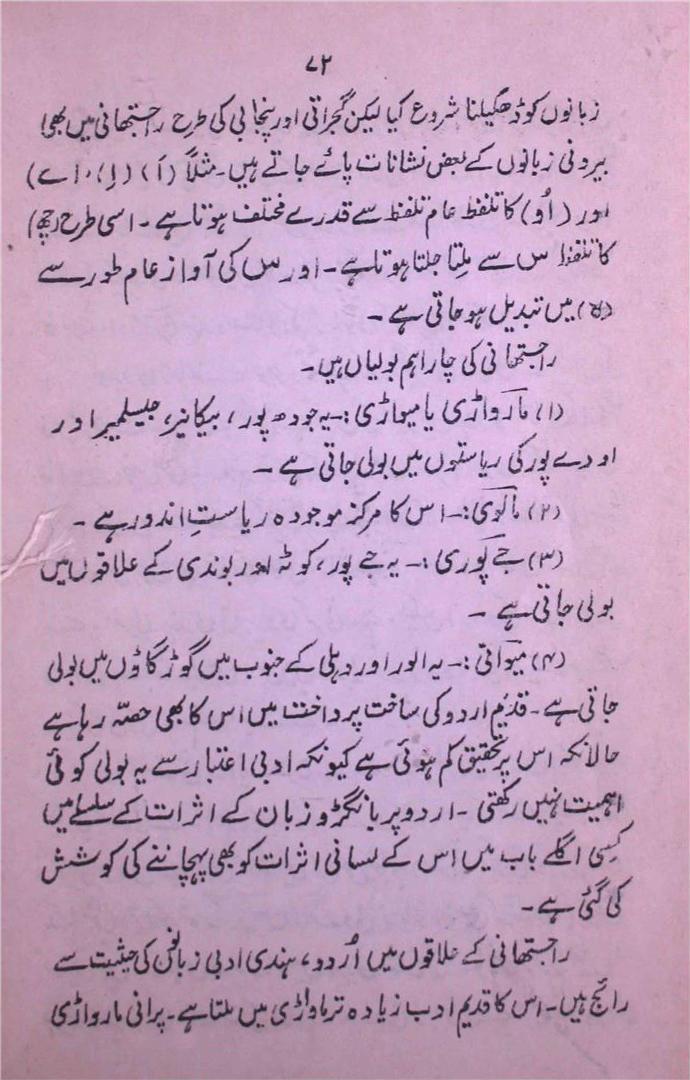 ۷۲
زبانوں کو ڈھکیلنا شروع کیا لیکن گجراتی اور پنجابی کی طرح راجستھانی میں بھی
بیرونی زبانوں کے بعض نشانات پائے جاتے ہیں۔ مثلاً (اَ) (اِ)، اے)
اور (اُو) کا تلفظ عام تلفظ سے قدرے مختلف ہوتا ہے۔ اسی طرح (چھ)
کا تلفظ س سے ملتا جلتا ہوتا ہے۔ اور س کی آواز عام طور سے
(ہ) میں تبدیل ہو جاتی ہے۔
راجستھانی کی چار اہم بولیاں ہیں۔
(۱) مارواڑی یا میواڑی :۔ یہ جودھ پور، بیکانیر، جیسلمیر اور
اودے پور کی ریاستوں میں بولی جاتی ہے۔
(۲) مالوی :۔ اس کا مرکز موجودہ ریاستِ اندور ہے۔
(۳) جے پوری :۔ یہ جے پور، کوٹہ اور بوندی کے علاقوں میں
بولی جاتی ہے۔
(۴) میواتی :۔ یہ الور اور دہلی کے جنوب میں گوڑگاؤں میں بولی
جاتی ہے۔ قدیم اردو کی ساخت پرداخت میں اس کا بھی حصّہ رہا ہے
حالانکہ اس پر تحقیق کم ہوئی ہے کیونکہ ادبی اعتبار سے یہ بولی کوئی
اہمیت نہیں رکھتی۔ اردو پر بانگڑو زبان کے اثرات کے سلسلے میں
کسی اگلے باب میں اس کے لسانی اثرات کو بھی پہچاننے کی کوشش
کی گئی ہے۔
راجستھانی کے علاقوں میں اُردو، ہندی ادبی زبانوں کی حیثیت سے
رائج ہیں۔ اس کا قدیم ادب زیادہ تر مارواڑی میں ملتا ہے۔ پرانی مارواڑی